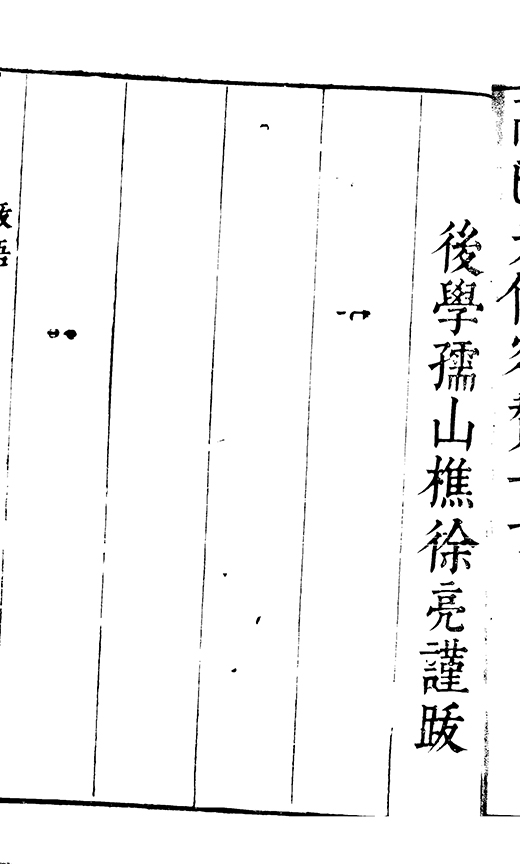 後學孺山樵徐亮謹跋
跋語